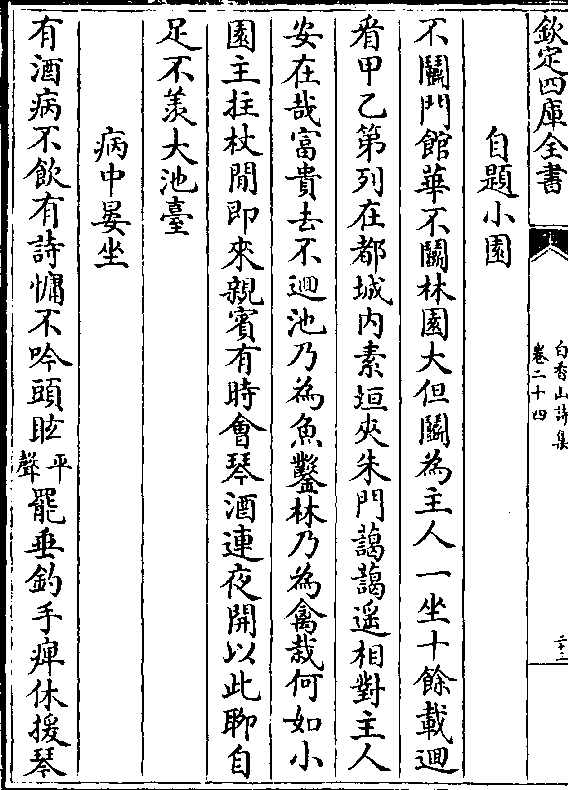 欽定四庫全書
白香山詩集
卷二十四
自題小園
不鬭門館華不鬭林園大但鬭為主人一坐十餘載迴
看甲乙第列在都城内素垣夾朱門藹藹遥相對主人
安在哉富貴去不迴池乃為魚鑿林乃為禽栽何如小
園主拄杖閒即來親賓有時會琴酒連夜開以此聊自
足不羨大池臺
病中晏坐
有酒病不飲有詩慵不吟頭眩平聲罷垂釣手痺休援琴